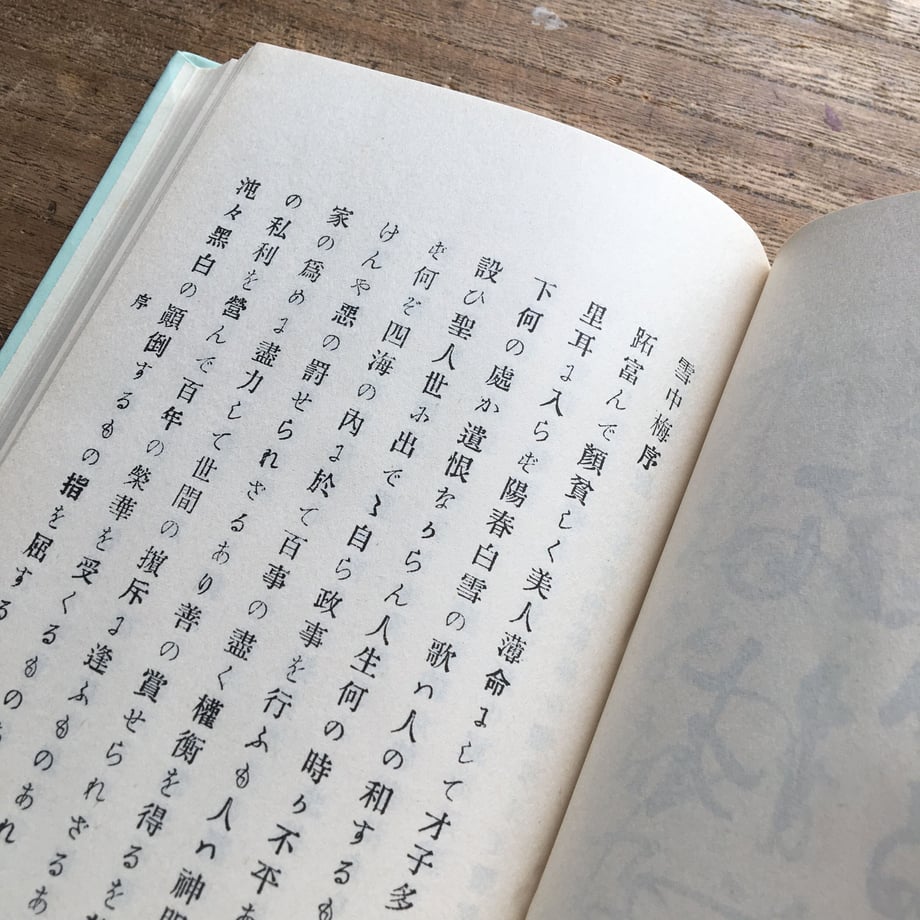 雪中梅序
跖富んで顔貧しく美人薄命にして才子多
里耳に入らず陽春白雪の歌ハ人の和するも
下何の處か遺恨なからん人生何の時か不平あ
設ひ聖人世に出でゝ自ら政事を行ふも人ハ神明
ず何ぞ四海の内に於て百事の盡く權衡を得るを
けんや惡の罰せられざるあり善の賞せられざるあ
家の爲めに盡力して世間の擯斥に逢ふものあれ
の私利を營んで百年の榮華を受くるものあ
沌々黑白の顚倒するもの指を屈する
序